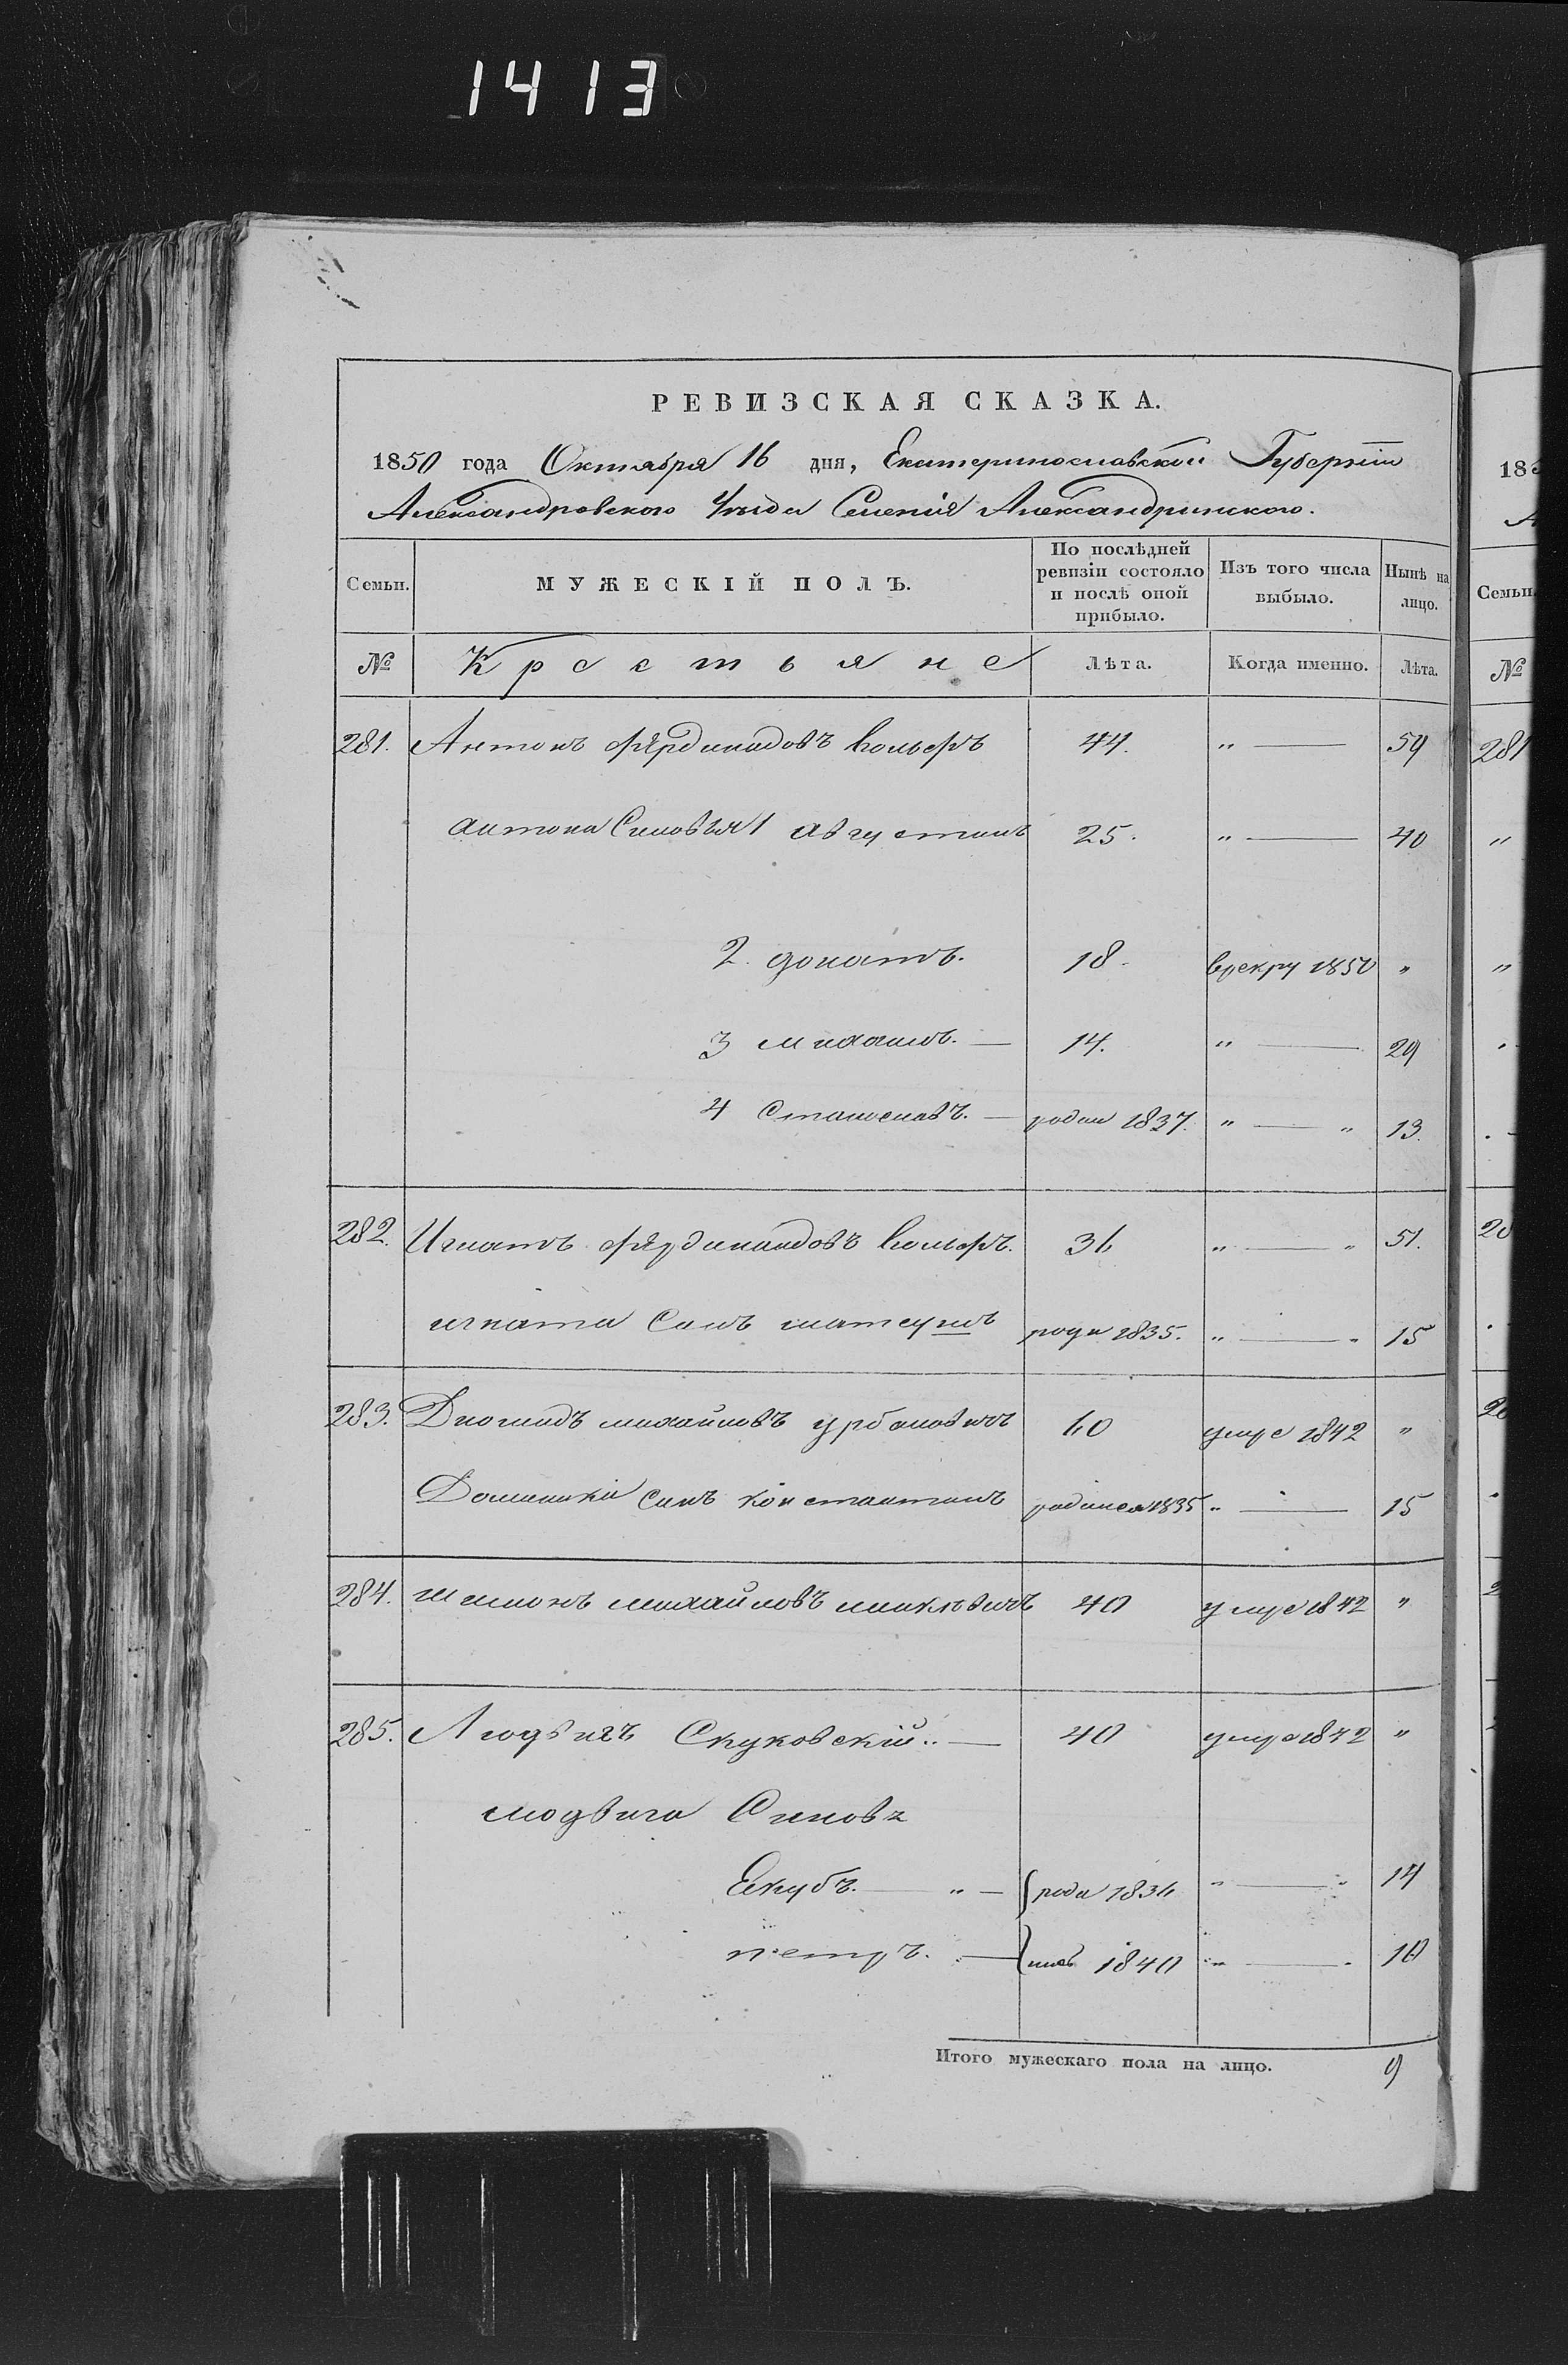 1413
РЕВИЗСКАЯ СКАЗКА.
1850 года Октября 16 дня, Екатеринославской Губерніи
Александровского Уѣзда Селенія Александринского.
Семьи. МУЖЕСКІЙ ПОЛЪ. По послѣдней ревизіи состояло и послѣ оной прибыло. Изъ того числа выбыло. Нынѣ на лицо.
№ Крестьяне Лѣта. Когда именно. Лѣта.
281. Антонъ Фердинадовъ Вольфъ 44. „ — 59
антона Синовья 1 августинъ 25. „ — 40
2. донатъ. 18. врекру 1850 „
3 михаилъ. — 14. „ — 29
4 Станиславъ. — родил 1837. „ — „ 13.
282. Игнатъ Фердинандовъ Вольфъ. 36 „ — „ 51.
игната Синъ матеушъ роди 1835. „ — „ 15
283. михайловъ урбановичъ 60 умре 1842 „
Доминика Синъ константинъ родился 1835 „ — 15
284. шимонъ михайловъ 40 умре 1842 „
285. Людвигъ Скуковскій. — 40 умре 1842 „
людвига Синовя
Екубъ. — „ — роди 1836 „ — „ 14
петръ. — лись 1840 „ — „ 10
Итого мужескаго пола на лицо. 9
185
Семьи.
№
281
„
„